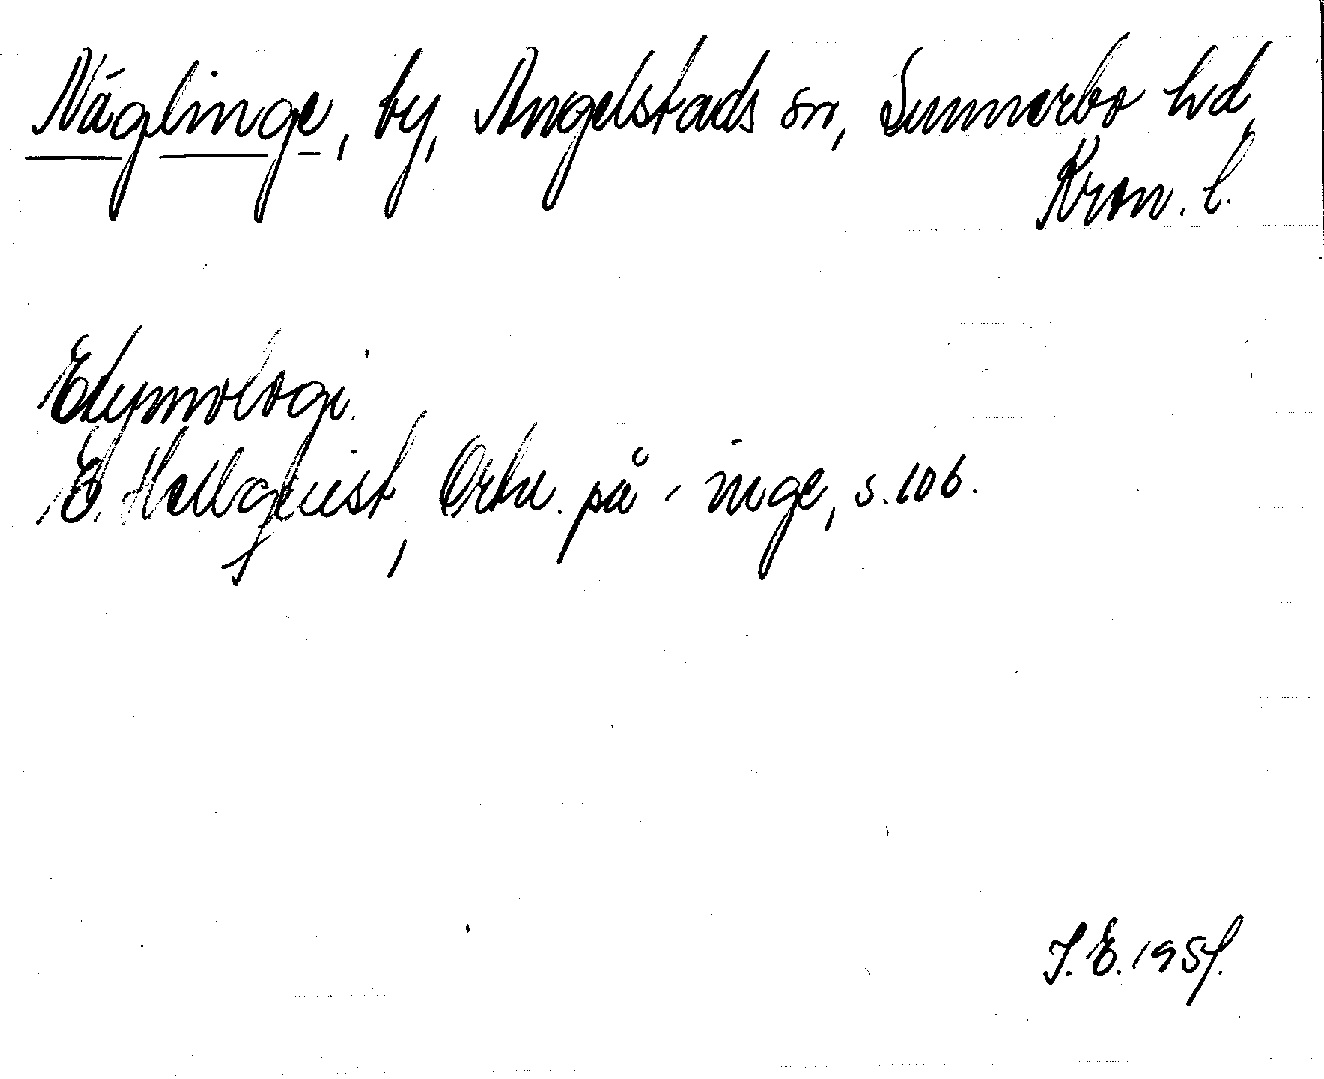 Näglinge, by, Angelstads sn, Sunnerbo hd,
Kron. l.
Etymologi.
E. Hellquist, Ortn. på -inge, s. 106.
J. E. 1957.